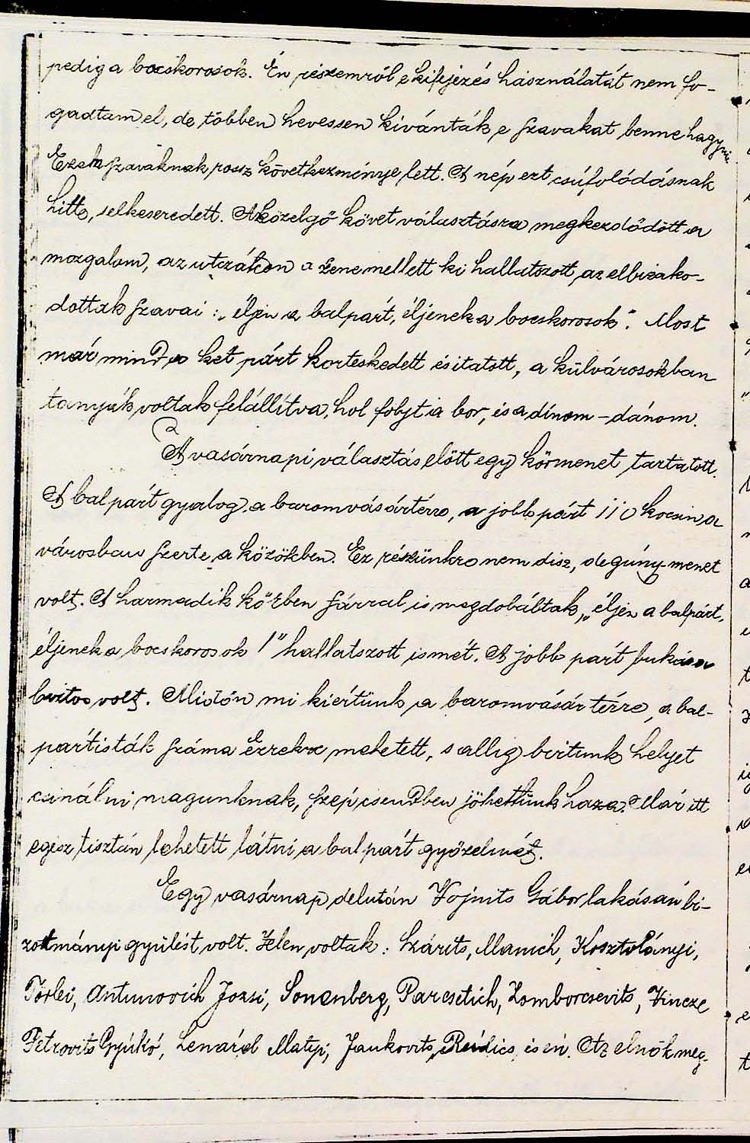 pedig a bocskorosok. Én részemről e kifejezés használatát nem fo-
gadtam el, de többen hevessen kivánták e szavakat benne hagyni
Ezek szavaknak rossz következménye lett. A nép ezt csúfolódásnak
hitte, s elkeseredett. A közelgő követválasztásra megkezdődött a
mozgalom, az utczákon a zene mellett ki hallatszott, az elbizako-
dottak szavai: „éljen a balpárt, éljenek a bocskorosok". Most
már mind a két párt korteskedett és itatott, a külvárosokban
tanyák voltak felállítva, hol folyt a bor, és a dínom-dánom.
A vasárnapi választás előtt egy körmenet tartatott.
A balpárt gyalog a baromvásártérre, a jobb párt 110 kocsin a
városban szerte a közökben. Ez részünkre nem disz, de gúny menet
volt. A harmadik körben sárral is megdobáltak, „éljen a balpárt,
éljenek a bocskorosok!" hallatszott ismét. A jobb párt bukása
biztos volt. Midőn mi kiértünk a baromvásár térre, a bal-
pártisták száma ezrekre mehetett, s allig birtunk helyet
csinálni magunknak, szép csendben jöhettünk haza. Már itt
egész tisztán lehetett látni a balpárt győzelmét.
Egy vasárnap délután Vojnits Gábor lakásán bi-
zottmányi gyülést volt. Jelen voltak: Szárits, Mamich, Kosztolányi,
Törlei, Antunovich Jozsi, Sonenberg, Parcsetich, Zomborcsevits, Vincze
Petrovits Gyúkó, Lenard Matyi, Jankovits, Reidics, és én. Az elnök meg-